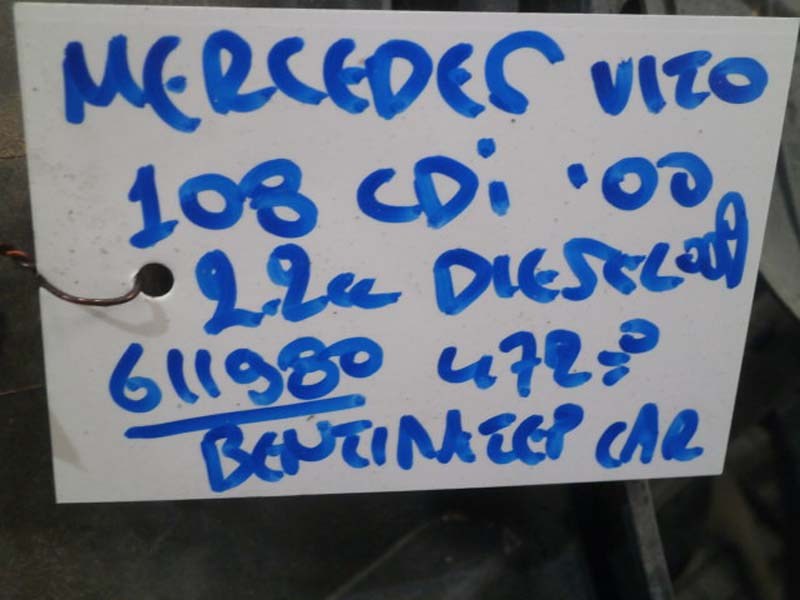 MERCEDES VITO
108 CDi '00
2.2cc DIESEL
611980 472
ΒΕΝΤΙΛΑΤΕΡ CAR